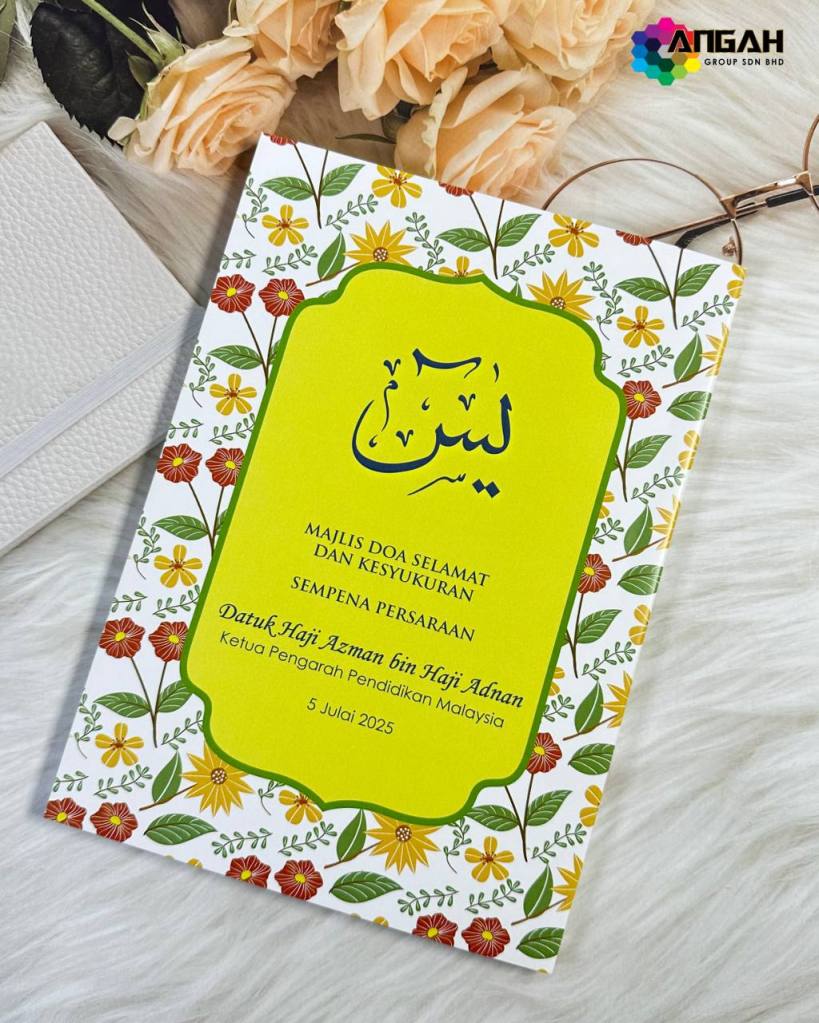 ANGAH
GROUP SDN BHD
يس
MAJLIS DOA SELAMAT
DAN KESYUKURAN
SEMPENA PERSARAAN
Datuk Haji Azman bin Haji Adnan
Ketua Pengarah Pendidikan Malaysia
5 Julai 2025